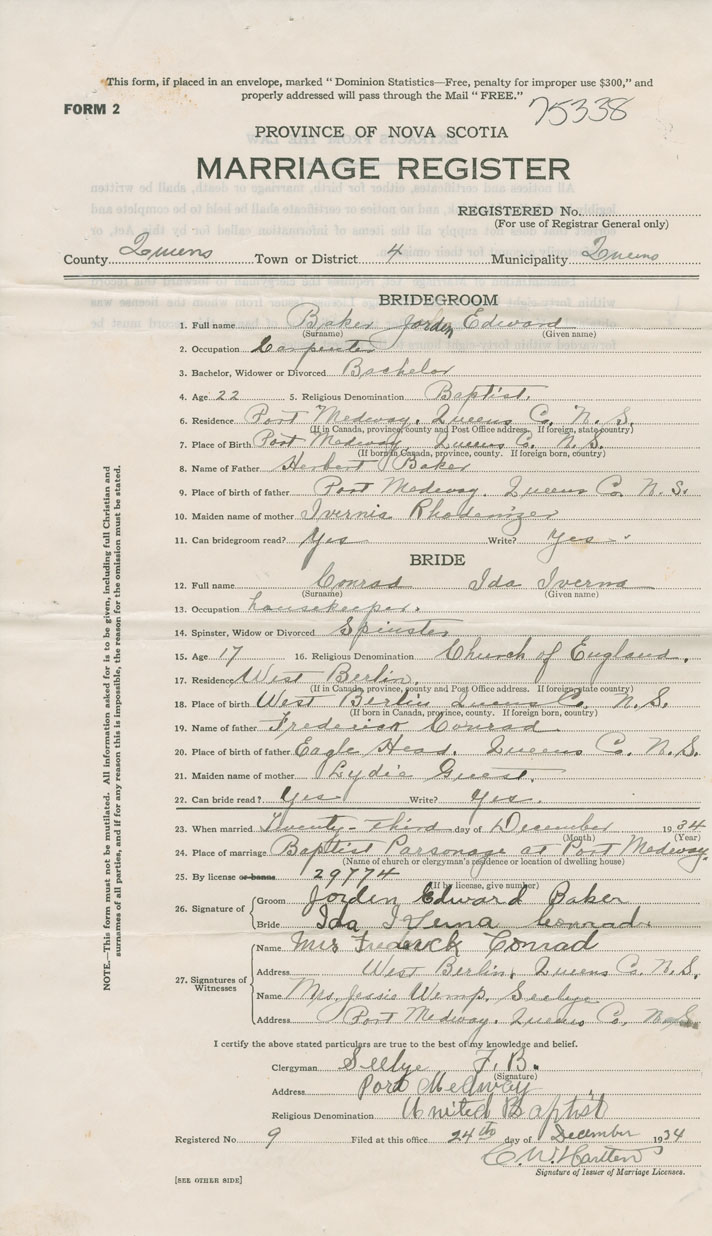 This form, if placed in an envelope, marked " Dominion Statistics—Free, penalty for improper use $300," and
properly addressed will pass through the Mail " FREE."
FORM 2
75338
PROVINCE OF NOVA SCOTIA
MARRIAGE REGISTER
REGISTERED No.
(For use of Registrar General only)
County Queens Town or District 4 Municipality Queens
BRIDEGROOM
1. Full name Baker Jorden Edward
(Surname) (Given name)
2. Occupation Carpenter
3. Bachelor, Widower or Divorced Bachelor
4. Age 22 5. Religious Denomination Baptist.
6. Residence Port Medway, Queens Co. N. S.
(If in Canada, province, county and Post Office address. If foreign, state country)
7. Place of Birth Port Medway Queens C. N. S.
(If born in Canada, province, county. If foreign born, country)
8. Name of Father Herbert Baker
9. Place of birth of father Port Medway. Queens Co. N. S.
10. Maiden name of mother Ivernia Rhodenizer
11. Can bridegroom read? Yes Write? Yes
BRIDE
12. Full name Conrad Ida Iverna
(Surname) (Given name)
13. Occupation housekeeper.
14. Spinster, Widow or Divorced Spinster
15. Age 17 16. Religious Denomination Church of England.
17. Residence West Berlin.
(If in Canada, province, county and Post Office address. If foreign state country)
18. Place of birth West Berlin Queens Co. N. S.
(If born in Canada, province, county. If foreign born, country)
19. Name of father Frederick Conrad
20. Place of birth of father Eagle Head. Queens Co. N. S.
21. Maiden name of mother Lydia Guest.
22. Can bride read? Yes Write? Yes.
23. When married Twenty-third day of December 1934
(Month) (Year)
24. Place of marriage Baptist Parsonage at Port Medway.
(Name of church or clergyman's residence or location of dwelling house)
25. By license or banns 29774
(If by license, give number)
26. Signature of Groom Jorden Edward Baker
Bride Ida Iverna Conrad.
27. Signatures of Witnesses
Name Mrs Frederick Conrad
Address West Berlin, Queens Co. N. S.
Name Mrs. Jessie Wemp. Seelye
Address Port Medway. Queens Co. N. S.
I certify the above stated particulars are true to the best of my knowledge and belief.
Clergyman Seelye F. B.
(Signature)
Address Port Medway
Religious Denomination United Baptist
Registered No 9 Filed at this office 24th day of December 1934
Signature of Issuer of Marriage Licenses.
[SEE OTHER SIDE]
NOTE.—This form must not be mutilated. All information asked for is to be given, including full Christian and
surnames of all parties, and if for any reason this is impossible, the reason for the omission must be stated.